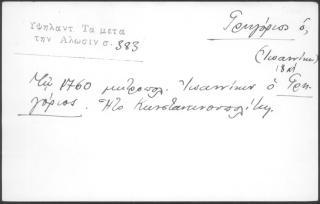 Ὑψηλαντ Τα μετα
την Αλωσιν σ. 383
Γρηγόριος ὁ,
(Ἰωαννίνων)
18 αἰ
Τῷ 1760 μητροπλ. Ἰωαννίνων ὁ Γρη-
γόριος. Ἦτο Κωνσταντινοπολίτης.